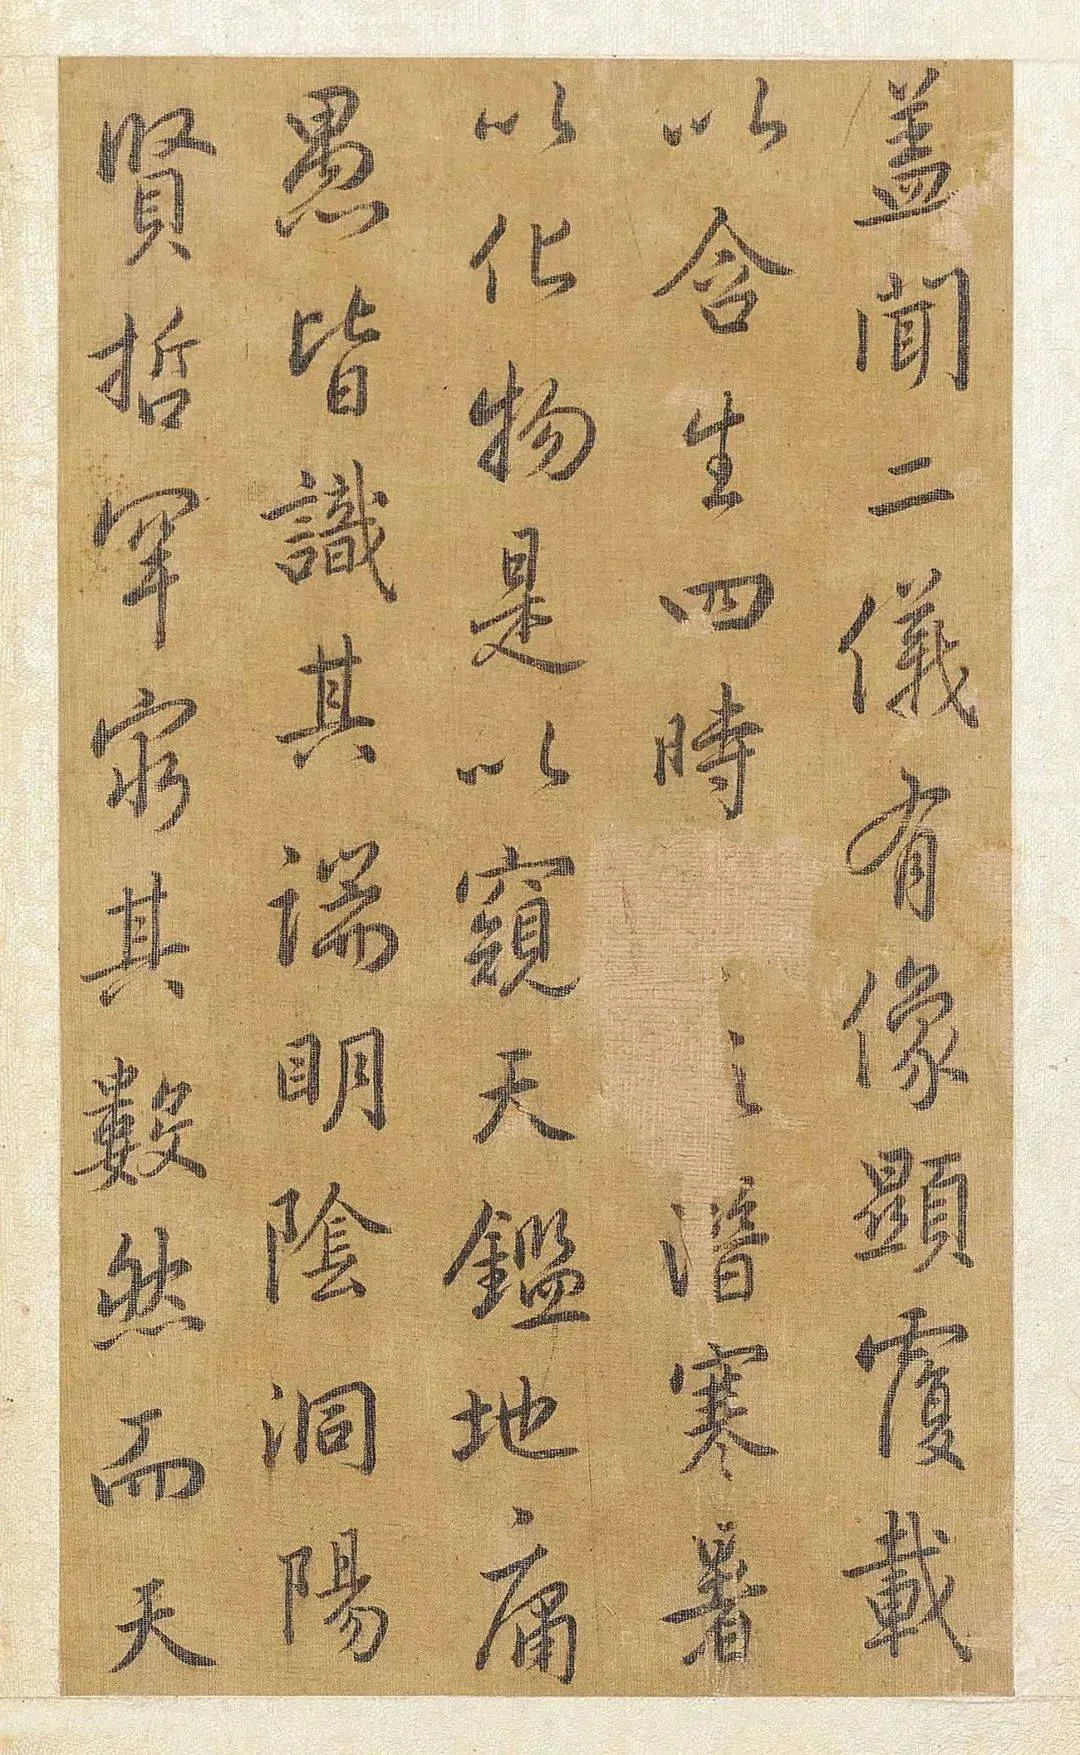 盖聞二儀有像顯覆載
以含生四時之潛寒暑
以化物是以窺天鑑地庸
愚皆識其端明陰洞陽
賢哲罕窮其數然而天